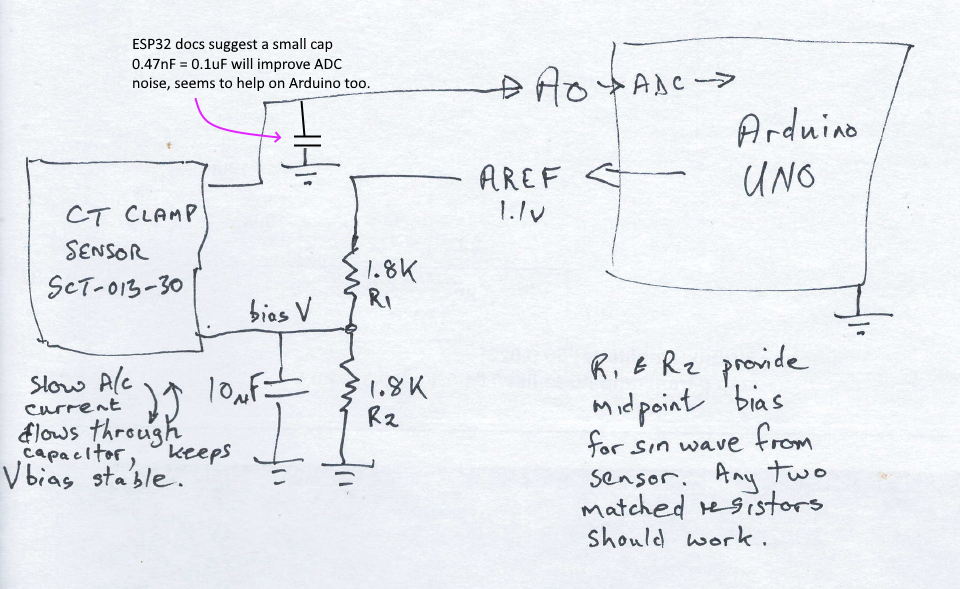 ESP32 docs suggest a small cap
0.47nF = 0.1uF will improve ADC
noise, seems to help on Arduino too.
A0
ADC
Arduino
UNO
AREF
1.1v
CT CLAMP
SENSOR
SCT-013-30
1.8K
R1
bias V
10µF
1.8K
R2
slow A/c
current
flows through
capacitor, keeps
Vbias stable.
R1 & R2 provide
midpoint bias
for sin wave from
sensor. Any two
matched resistors
should work.